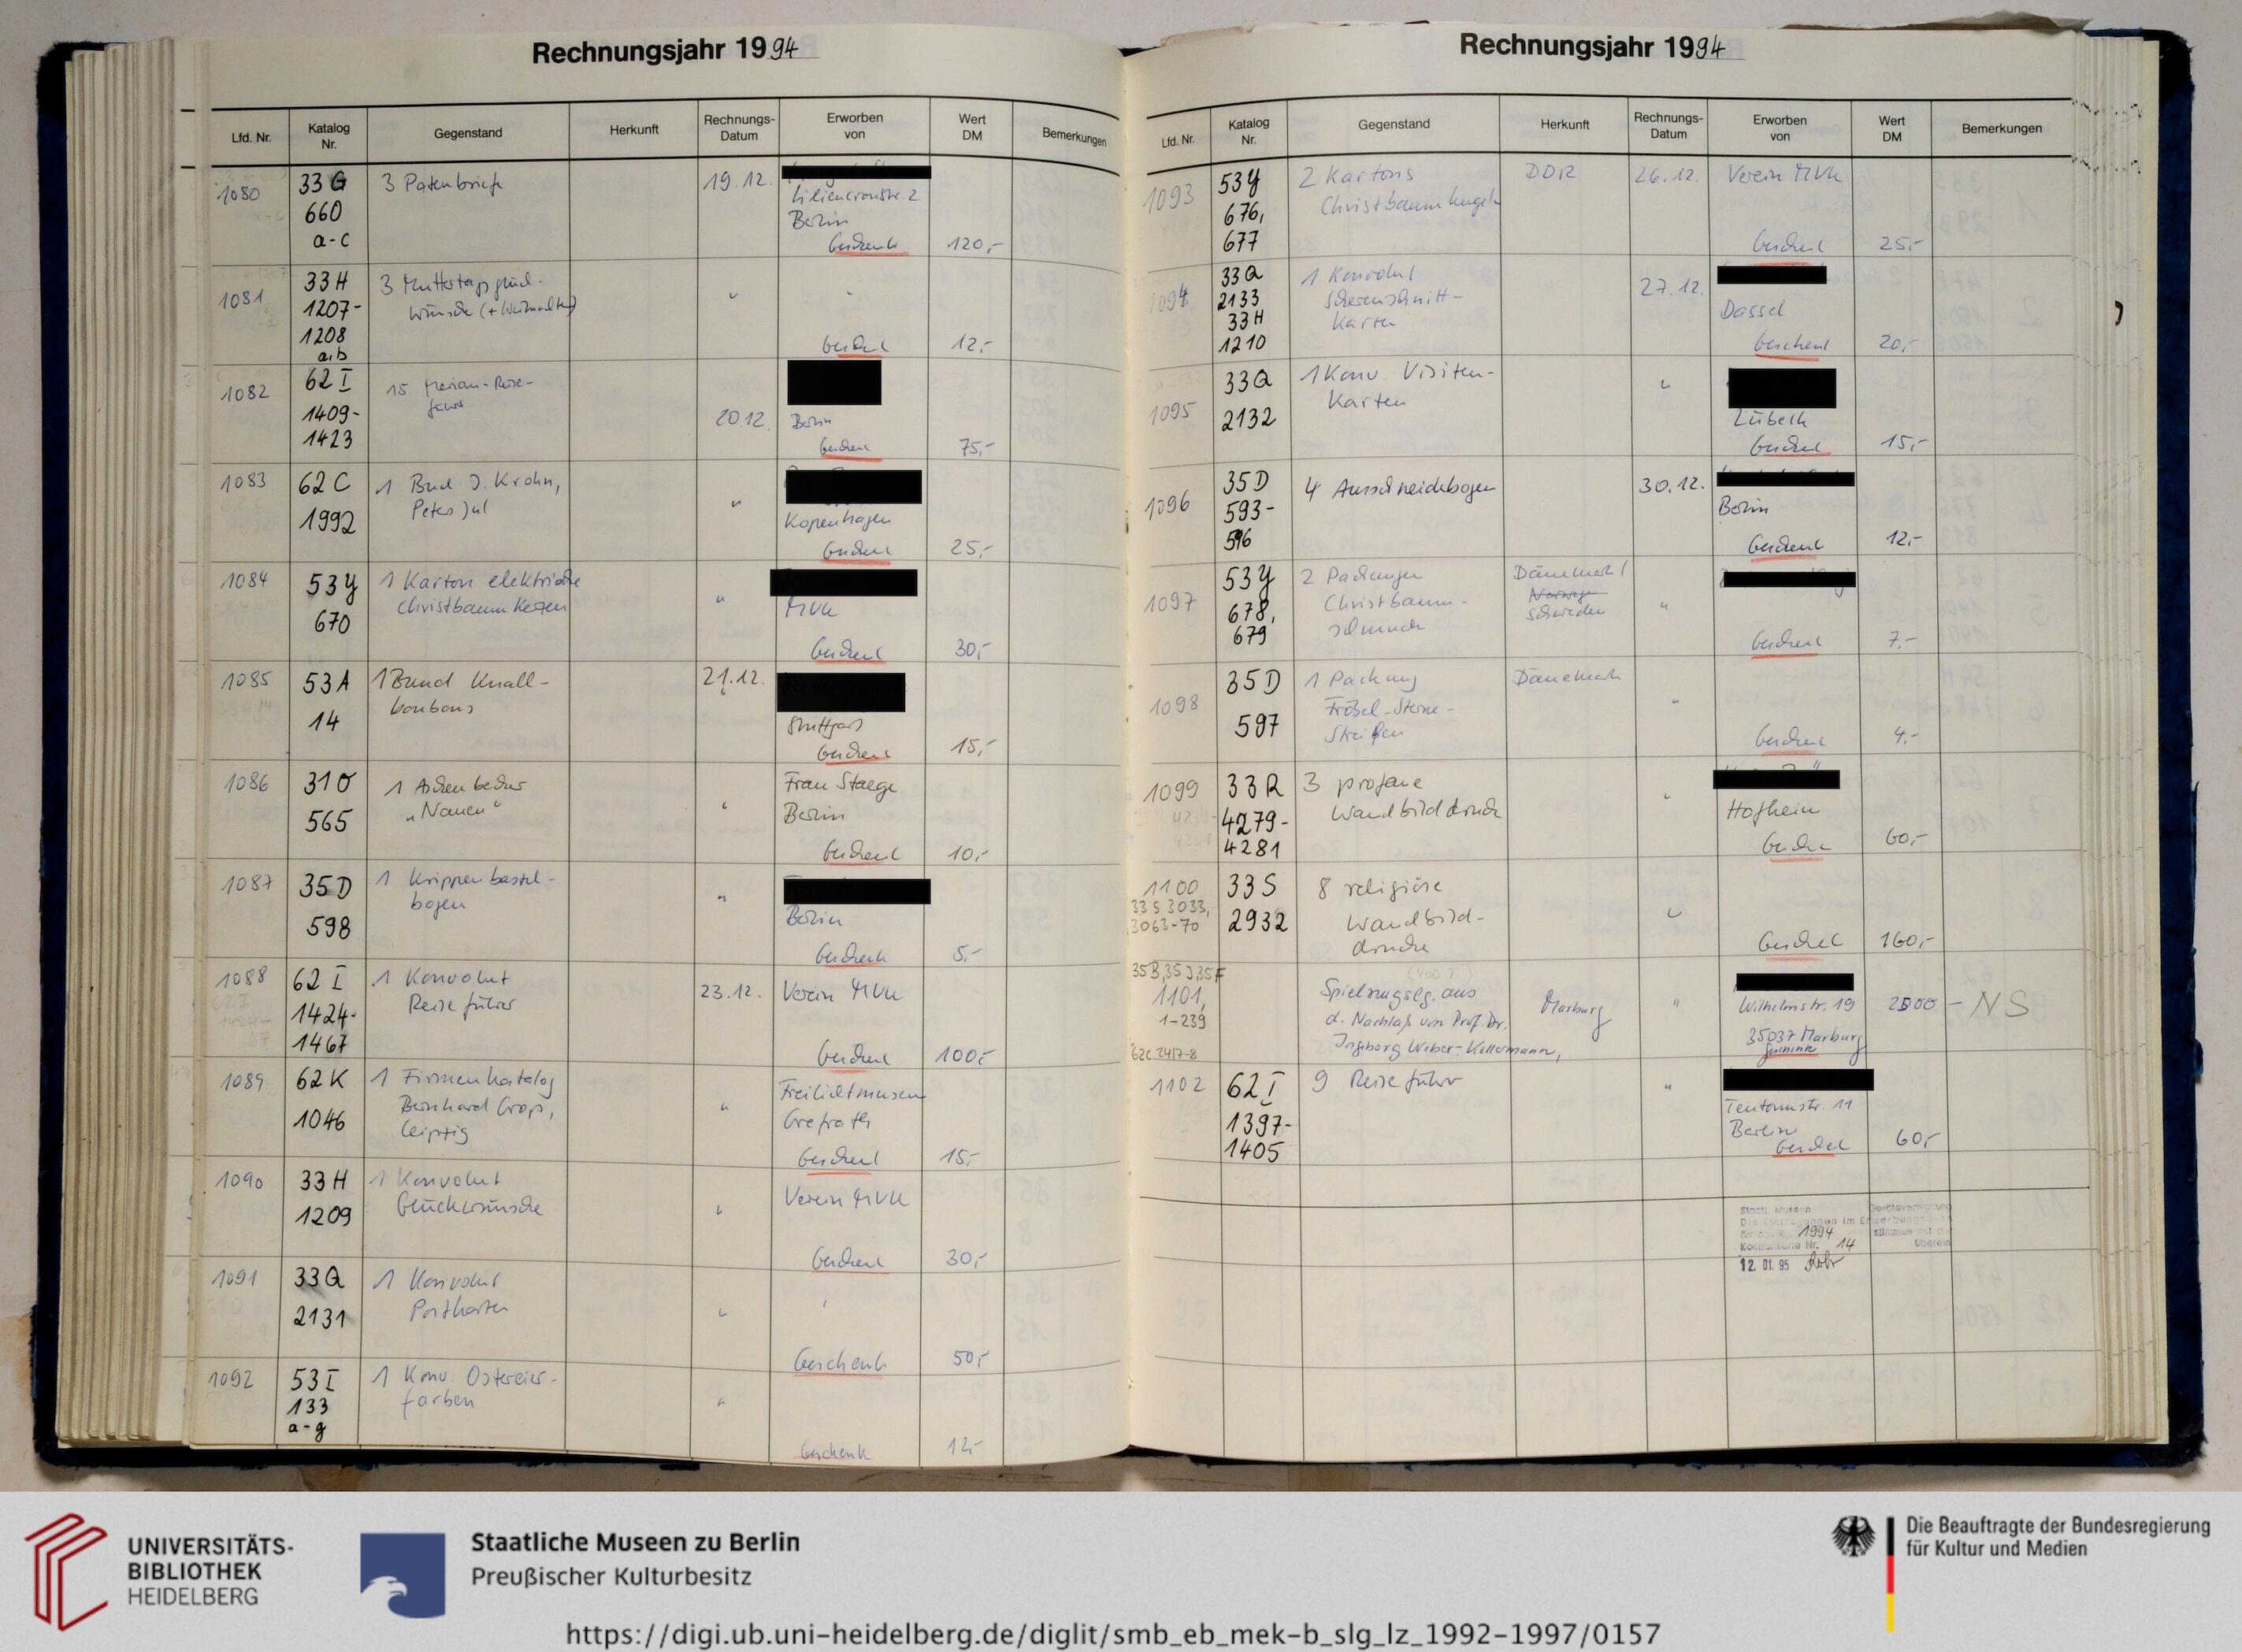 Rechnungsjahr 1994
Lfd. Nr.
Katalog Nr.
Gegenstand
Herkunft
Rechnungs-Datum
Erworben von
Wert DM
Bemerkungen
1080
33 G
660
a-c
3 Patenbriefe
19.12.
Liliencronstr. 2
Berlin
Geschenk
120,-
1081
33 H
1207-
1208
a,b
3 Muttertagsglück-
wünsche (+ Weihnachten)
"
"
Geschenk
12,-
1082
62 I
1409-
1423
15 Merian-Reise-
führer
20.12.
Berlin
Geschenk
75,-
1083
62 C
1992
1 Buch J. Krohn,
Peters Jul
"
Kopenhagen
Geschenk
25,-
1084
53 Y
670
1 Karton elektrische
Christbaumkerzen
"
MVK
Geschenk
30,-
1085
53 A
14
1 Bund Knall-
bonbons
21.12.
Stuttgart
Geschenk
15,-
1086
31 O
565
1 Aschenbecher
"Nauen"
"
Frau Staege
Berlin
Geschenk
10,-
1087
35 D
598
1 Krippenbastel-
bogen
"
Berlin
Geschenk
5,-
1088
62 I
1424-
1467
1 Konvolut
Reiseführer
23.12.
Verein MVK
Geschenk
100,-
1089
62 K
1046
1 Firmenkatalog
Bernhard
Leipzig
"
Freilichtmuseum
Grefrath
Geschenk
15,-
1090
33 H
1209
1 Konvolut
Glückwünsche
"
Verein MVK
Geschenk
30,-
1091
33 Q
2131
1 Konvolut
Postkarten
"
"
Geschenk
50,-
1092
53 I
133
a-g
1 Konv. Ostereier-
farben
"
Geschenk
12,-
Rechnungsjahr 1994
Lfd. Nr.
Katalog Nr.
Gegenstand
Herkunft
Rechnungs-Datum
Erworben von
Wert DM
Bemerkungen
1093
53 Y
676,
677
2 Kartons
Christbaumkugeln
DDR
26.12.
Verein MVK
Geschenk
25,-
1094
33 Q
2133
33 H
1210
1 Konvolut
Scherenschnitt-
Karten
27.12.
Dassel
Geschenk
20,-
1095
33 Q
2132
1 Konv. Visiten-
Karten
"
Lübeck
Geschenk
15,-
1096
35 D
593-
596
4 Ausschneidebogen
30.12.
Berlin
Geschenk
12,-
1097
53 Y
678,
679
2 Packungen
Christbaum-
schmuck
Dänemark/
Norwegen
Schweden
"
Geschenk
7,-
1098
35 D
597
1 Packung
Fröbel-Sterne-
Streifen
Dänemark
"
Geschenk
4,-
1099
33 R
4279-
4281
3 profane
Wandbilddrucke
"
Hofheim
Geschenk
60,-
1100
33 S 3033,
3063-70
33 S
2932
8 religiöse
Wandbild-
drucke
"
Geschenk
160,-
35 B, 35 J, 35 F
1101,
1-239
62 C 2417-8
Spielzeugslg. aus
d. Nachlaß von Prof. Dr.
Ingeborg Weber-Kellermann,
Marburg
"
Wilhelmstr. 19
35037 Marburg
Geschenk
2500,-
NS
1102
62 I
1397-
1405
9 Reiseführer
"
Teutonenstr. 11
Berlin
Geschenk
60,-
Staatl. Museen
1994
Kontrollkarte Nr. 14
stimmen mit der
überein
12. 01. 95
UNIVERSITÄTS-
BIBLIOTHEK
HEIDELBERG
Staatliche Museen zu Berlin
Preußischer Kulturbesitz
Die Beauftragte der Bundesregierung
für Kultur und Medien
https://digi.ub.uni-heidelberg.de/diglit/smb_eb_mek-b_slg_lz_1992-1997/0157